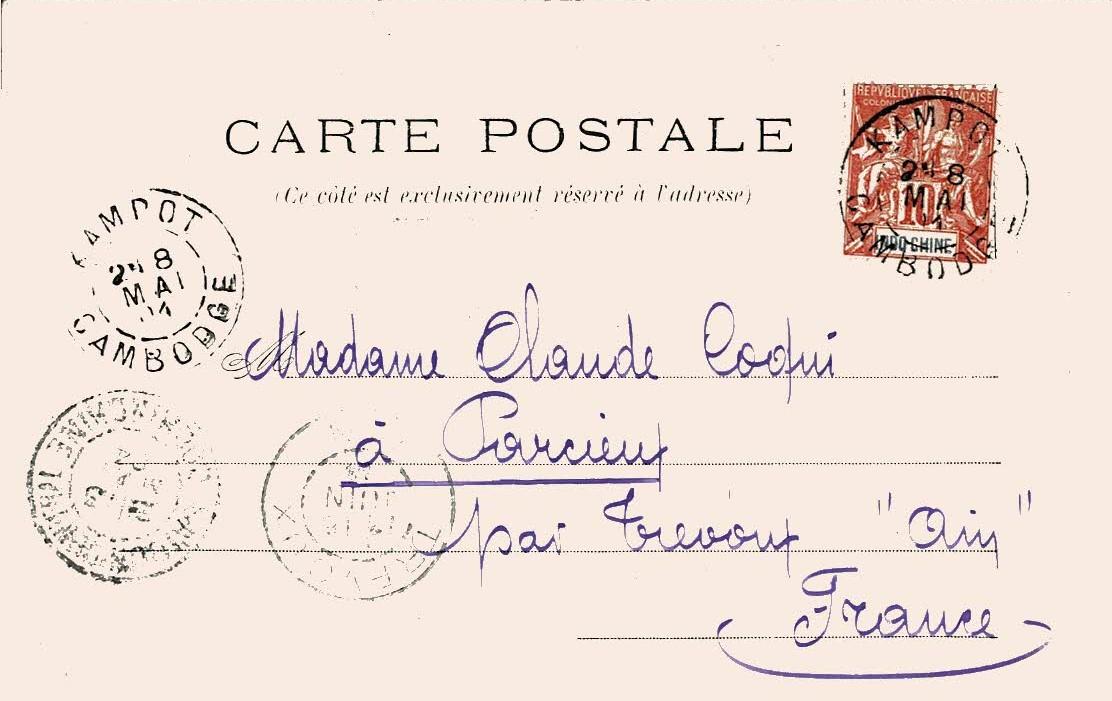 REPVBLIQVE FRANÇAISE
COLONIES
CARTE POSTALE
(Ce côté est exclusivement réservé à l'adresse)
KAMPOT
8
MAI
CAMBODGE
10
INDO-CHINE
KAMPOT
8
MAI
04
CAMBODGE
Madame Claude Coqui
à Parcieux
par Trévoux "Ain"
France
TREVOUX
JUIN